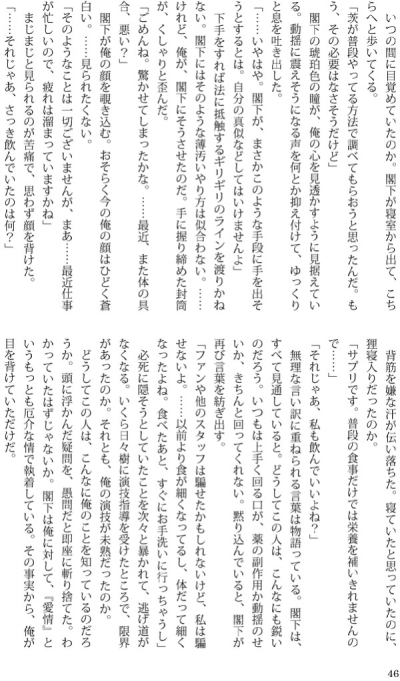 いつの間に目覚めていたのか。閣下が寝室から出て、こち
らへと歩いてくる。
「茨が普段やってる方法で調べてもらおうと思ったんだ。も
う、その必要はなさそうだけど」
閣下の琥珀色の瞳が、俺の心を見透かすように見据えてい
る。動揺に震えそうになる声を何とか抑え付けて、ゆっくり
と息を吐き出した。
「……いやはや。閣下が、まさかこのような手段に手を出そ
うとするとは。自分の真似などしてはいけませんよ」
下手をすれば法に抵触するギリギリのラインを渡りかね
ない。閣下にはそのような薄汚いやり方は似合わない。……
けれど、俺が、閣下にそうさせたのだ。手に握り締めた封筒
が、くしゃりと歪んだ。
「ごめんね。驚かせてしまったかな。……最近、また体の具
合、悪い？」
閣下が俺の顔を覗き込む。おそらく今の俺の顔はひどく蒼
白い。……見られたくない。
「そのようなことは一切ございませんが、まあ……最近仕事
が忙しいので、疲れは溜まっていますかね」
まじまじと見られるのが苦痛で、思わず顔を背けた。
「……それじゃあ、さっき飲んでいたのは何？」
背筋を嫌な汗が伝い落ちた。寝ていたと思っていたのに、
狸寝入りだったのか。
「サプリです。普段の食事だけでは栄養を補いきれませんの
で……」
「それじゃあ、私も飲んでいいよね？」
無理な言い訳に重ねられる言葉は物語っている。閣下は、
すべて見通していると。どうしてこの人は、こんなにも鋭い
のだろう。いつもは上手く回る口が、薬の副作用か動揺のせ
いか、きちんと回ってくれない。黙り込んでいると、閣下が
再び言葉を紡ぎ出す。
「ファンや他のスタッフは騙せたかもしれないけど、私は騙
せないよ。……以前より食が細くなってるし、体だって細く
なったよね。食べたあと、すぐにお手洗いに行っちゃうし」
必死に隠そうとしていたことを次々と暴かれて、逃げ道が
なくなる。いくら日々樹に演技指導を受けたところで、限界
があったのか。それとも、俺の演技が未熟だったのか。
どうしてこの人は、こんなに俺のことを知っているのだろ
うか。頭に浮かんだ疑問を、愚問だと即座に斬り捨てた。わ
かっていたはずじゃないか。閣下は俺に対して、『愛情』と
いうもっとも厄介な情で執着している。その事実から、俺が
目を背けていただけだ。
46